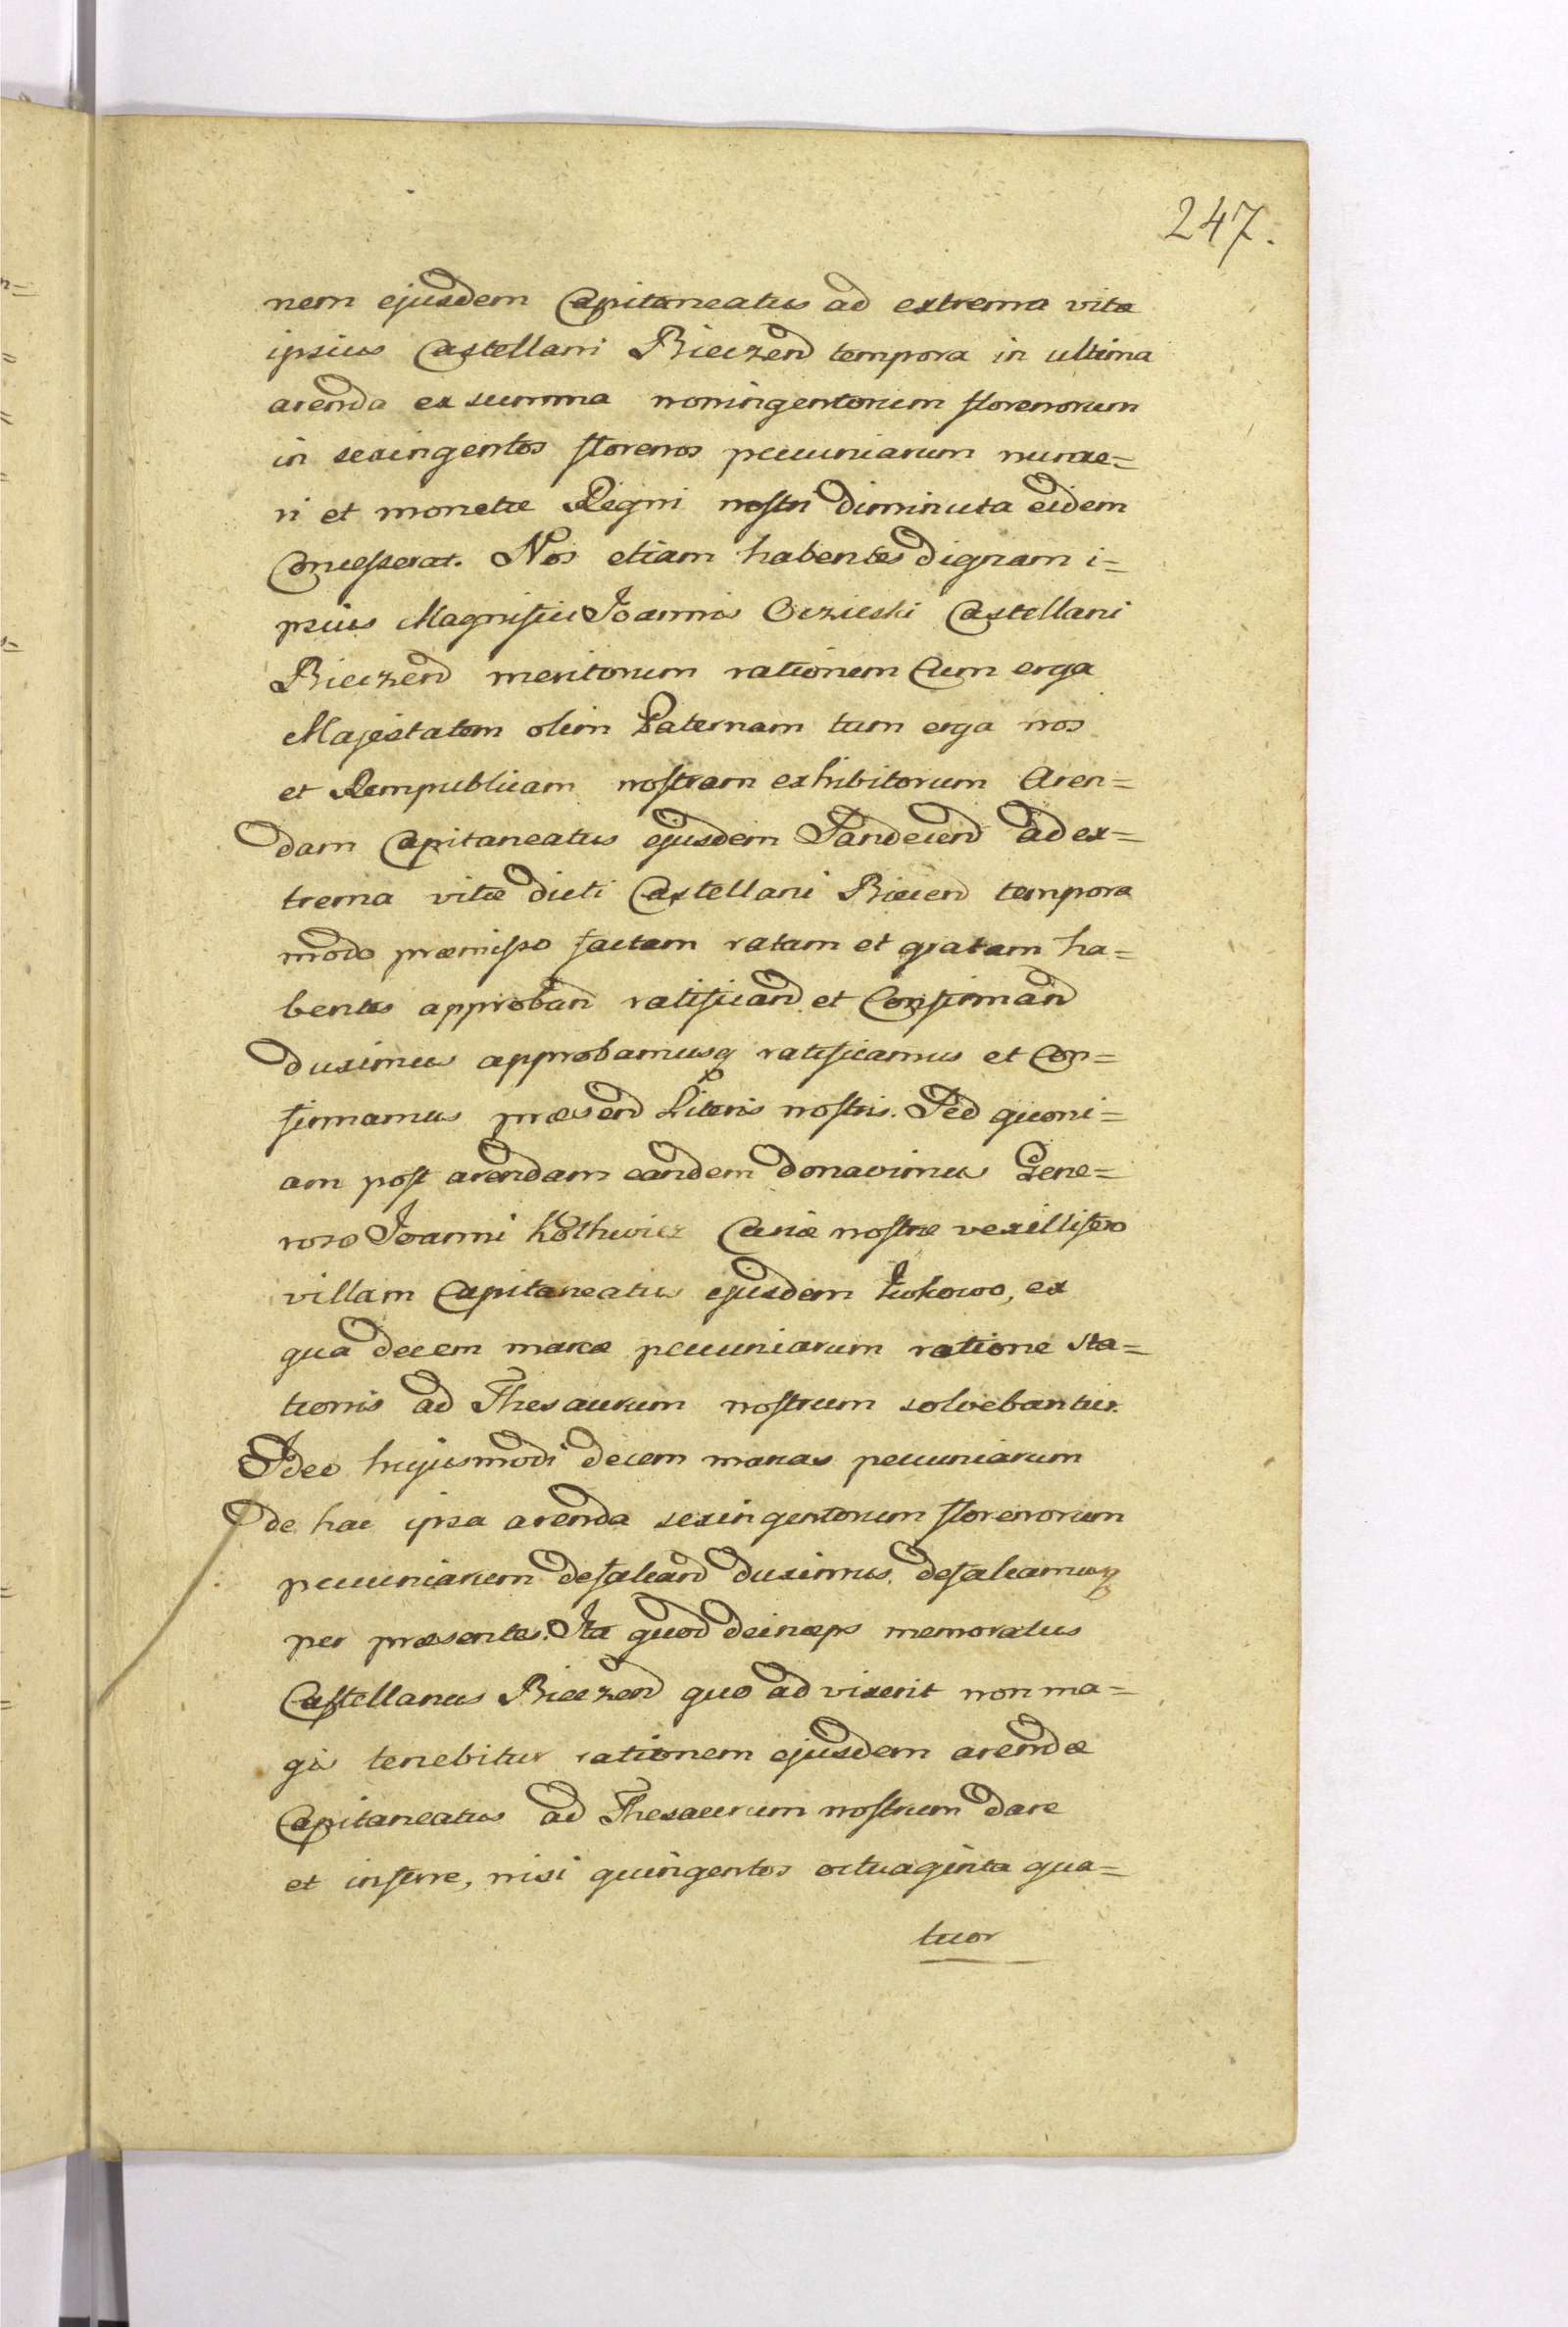 247.
nem ejusdem Capitaneatus ad extrema vitæ
ipsius Castellani Bieczen̄ tempora in ultima
arenda ex summa noningentorum florenorum
in sexingentos florenos pecuniarum nume=
ri et monetæ Regni nostri diminuta eidem
Concesserat. Nos etiam habentes dignam i=
psius Magnifici Joannis Oczieski Castellani
Bieczen̄ meritorum rationem Cum erga
Majestatem olim Paternam tum erga nos
et Rempublicam nostram exhibitorum Aren=
dam Capitaneatus ejusdem Sandecen̄ ad ex=
trema vitæ dicti Castellani Biecen̄ tempora
modo præmisso factam ratam et gratam ha=
bentes approban̄ ratifican̄ et Confirman̄
duximus approbamusq ratificamus et Con=
firmamus præsen̄ Literis nostris. Sed quoni=
am post arendam eandem donavimus Gene=
roso Joanni Kothwicz Curiæ nostræ vexillifero
villam Capitaneatus ejusdem Łukowo, ex
qua decem marcæ pecuniarum ratione sta=
tionis ad Thesaurum nostrum solvebantur.
Ideo hujusmodi decem marcas pecuniarum
de hac ipsa arenda sexingentorum florenorum
pecuniarum defalcan̄ duximus. defalcamusq
per præsentes. Ita quod deinceps memoratus
Castellanus Bieczen̄ quo ad vixerit non ma=
gis tenebitur rationem ejusdem arendæ
Capitaneatus ad Thesaurum nostrum dare
et inferre, nisi quingentos octuaginta qua=
tuor